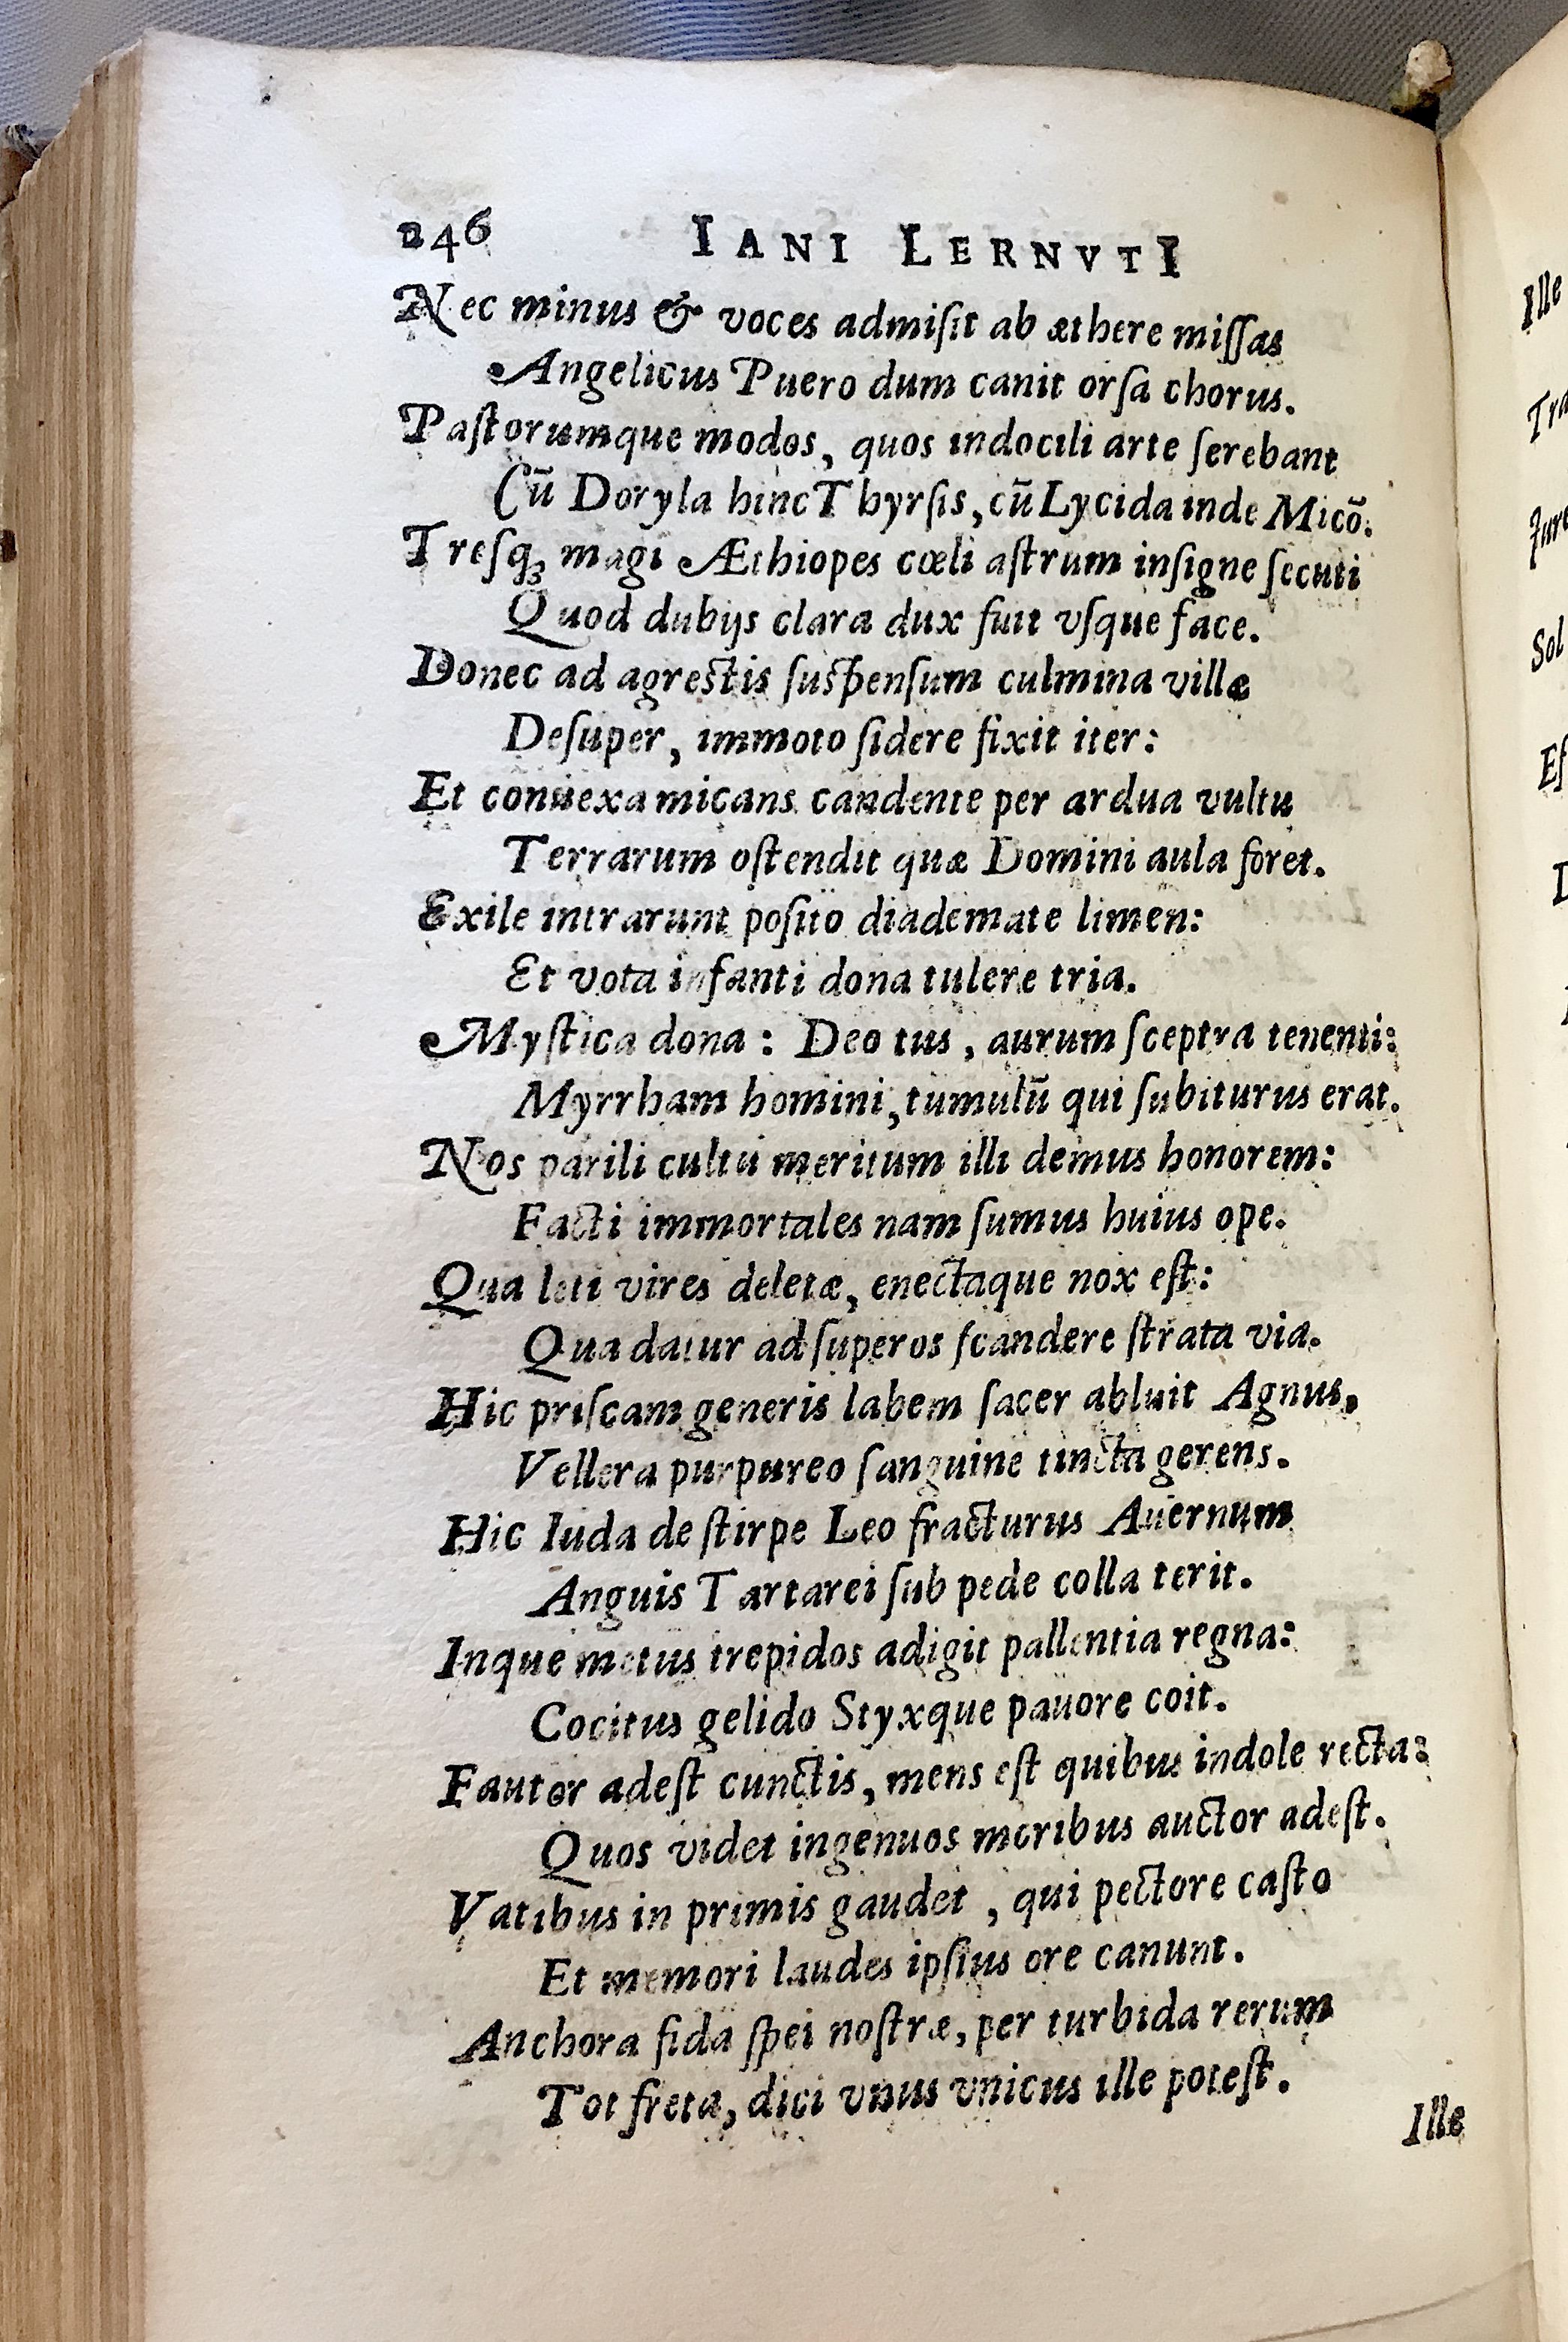 246 IANI LERNVTI
Nec minus & voces admiſit ab æthere miſſas
Angelicus Puero dum canit orſa chorus.
Paſtorumque modos, quos indocili arte ſerebant
Cū Doryla hinc Thyrſis, cū Lycida inde Micō.
Treſqꝫ magi Æthiopes cœli aſtrum inſigne ſecuti
Quod dubijs clara dux fuit vſque face.
Donec ad agreſtis ſuſpenſum culmina villæ
Deſuper, immoto ſidere fixit iter:
Et conuexa micans candente per ardua vultu
Terrarum oſtendit quæ Domini aula foret.
Exile intrarunt poſito diademate limen:
Et vota infanti dona tulere tria.
Myſtica dona: Deo tus, aurum ſceptra tenenti:
Myrrham homini, tumulū qui ſubiturus erat.
Nos parili cultu meritum illi demus honorem:
Facti immortales nam ſumus huius ope.
Qua leti vires deletæ, enectaque nox eſt:
Qua datur ad ſuperos ſcandere ſtrata via.
Hic priſcam generis labem ſacer abluit Agnus,
Vellera purpureo ſanguine tincta gerens.
Hic Iuda de ſtirpe Leo fracturus Auernum
Anguis Tartarei ſub pede colla terit.
Inque metus trepidos adigit pallentia regna:
Cocitus gelido Styxque pauore coit.
Fautor adeſt cunctis, mens eſt quibus indole recta:
Quos videt ingenuos moribus auctor adeſt.
Vatibus in primis gaudet, qui pectore caſto
Et memori laudes ipſius ore canunt.
Anchora fida ſpei noſtræ, per turbida rerum
Tot freta, dici vnus vnicus ille poteſt.
Ille
Ille
Tra
Iure
Sol
Eſ